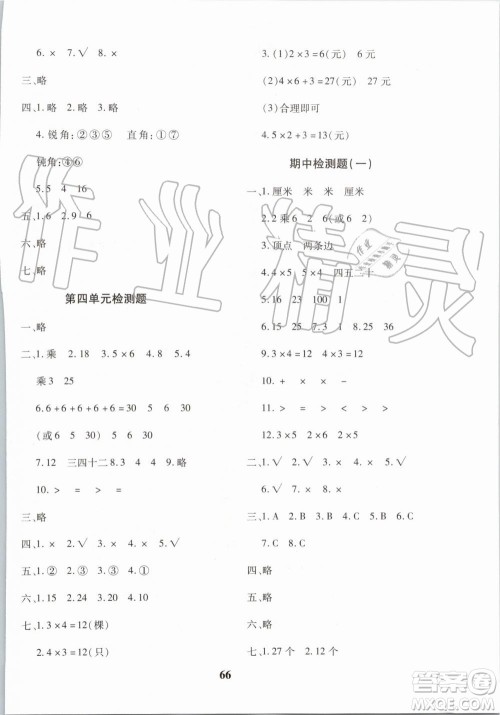 6. × 7. √ 8. ×
三、略
四、1. 略 2. 略 3. 略
4. 锐角：②③⑤ 直角：①⑦
钝角：④⑥
5. 5 4 6
五、1. 6 2. 9 6
六、略
七、略
第四单元检测题
一、略
二、1. 乘 2. 18 3. 5×4 4. 5
乘3 25
6. 6+6+6+6+6 5 5 6 30
(或6 5 30)
7. 12 三四十二 8. 3 4 9. 略
10. > > = =
三、略
四、1. × 2. √ 3. √ 4. × 5. √
五、1. ② 2. ③ 3. ③ 4. ①
六、1. 14 2. 20 3. 24 4. 8
七、1. 3×4=12(棵)
2. 3×4=12(只)
3. (1) 2×3=6(元) 6元
(2) 4×6+3=27(元) 27元
(3) 合理即可
4. 5×2+3=13(元)
期中检测题(一)
一、1. 厘米 米 米 厘米
2. 2 乘6 2 6 (或6 2)
3. 顶点 两条边
4. 4×5 5×4 四五二十
5. 16 23 100 1
6. 15 24 25
9. 3×4=12 4×3=12
10. + × × -
11. > = < >
12. 3×4 2×6 2×5 2×2
二、1. √ 2. √ 3. × 4. × 5. √
三、1. A 2. A 3. B 4. C 5. B
四、略
五、略
六、略
七、1. 27个 2. 12个
66
作业精灵
作业
精灵
答案圈
MXQE.COM